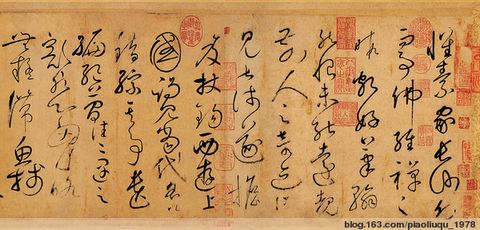 懷素家長沙幼而
事佛經禪之
暇頗好筆翰
然恨未能遠覩
前人之奇迹所
見甚淺遂擔
笈杖錫西遊上
國謁見當代名公
錯綜其事遺
編絶簡往往遇之
豁然心胸略
無疑滯魚牋
blog.163.com/piaoliuqu_1978